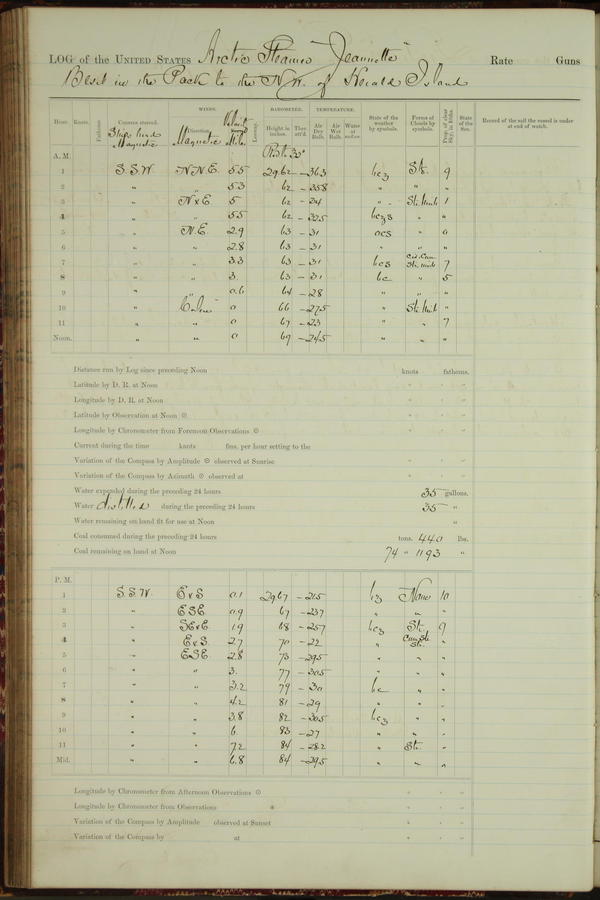 LOG of the UNITED STATES Arctic Steamer "Jeannette" Rate Guns
Beset in the Pack to the N.W. of Herald Island
WINDS. BAROMETER. TEMPERATURE.
Hour. Knots. Fathoms. Courses steered. Ships head Magnetic Direction. Magnetic Velocity Miles Leeway. Height in inches. Ther. att'd. Air Dry Bulb. Air Wet Bulb. Water at surface State of the weather by symbols. Forms of Clouds by symbols. Prop. of clear Sky, in 10ths. State of the Sea. Record of the sail the vessel is under at end of watch.
A. M.
1 S.S.W. N.N.E. 5.5 29.62 -36.3 bcz Str. 9
2 " " 5.3 62 -35.8 " " "
3 " N x E. 5 62 -34 " " Str. Nimb 1
4 " " 5.5 62 -32.5 bczs " "
5 " N.E. 2.9 63 -31 ocs " 0
6 " " 2.8 63 -31 " " "
7 " " 3.3 63 -31 bcs Cir. Cum. Str. nimb 7
8 " " 3 63 -31 bc " 5
9 " " 0.6 64 -28 " " "
10 " "Calm" 0 66 -27.5 " Str. Nimb "
11 " " 0 67 -23 " " 7
Noon. " " 0 69 -24.5 " " "
Distance run by Log since preceding Noon knots fathoms.
Latitude by D. R. at Noon
Longitude by D. R. at Noon
Latitude by Observation at Noon ☉
Longitude by Chronometer from Forenoon Observations ☉
Current during the time knots fms. per hour setting to the
Variation of the Compass by Amplitude ☉ observed at Sunrise
Variation of the Compass by Azimuth ☉ observed at
Water expended during the preceding 24 hours 35 gallons.
Water distilled during the preceding 24 hours 35 "
Water remaining on hand fit for use at Noon "
Coal consumed during the preceding 24 hours tons. 440 lbs.
Coal remaining on hand at Noon 74 " 1193 "
P. M.
1 S.S.W. E x S 0.1 29.67 -21.5 bz None 10
2 " ESE. 0.9 67 -23.7 " " "
3 " SE x E. 1.9 68 -25.7 bcz Str. 9
4 " E x S. 2.7 70 -22 " Cum. Str. Str. "
5 " ESE. 2.8 73 -29.5 " " "
6 " " 3. 77 -30.5 " " "
7 " " 3.2 79 -30 bc " "
8 " " 4.2 81 -29 " " "
9 " " 3.8 82 -30.5 bcz " "
10 " " 6. 83 -27 " " "
11 " " 7.2 84 -28.2 " Str. "
Mid. " " 6.8 84 -29.5 " " "
Longitude by Chronometer from Afternoon Observations ☉
Longitude by Chronometer from Observations *
Variation of the Compass by Amplitude observed at Sunset
Variation of the Compass by at